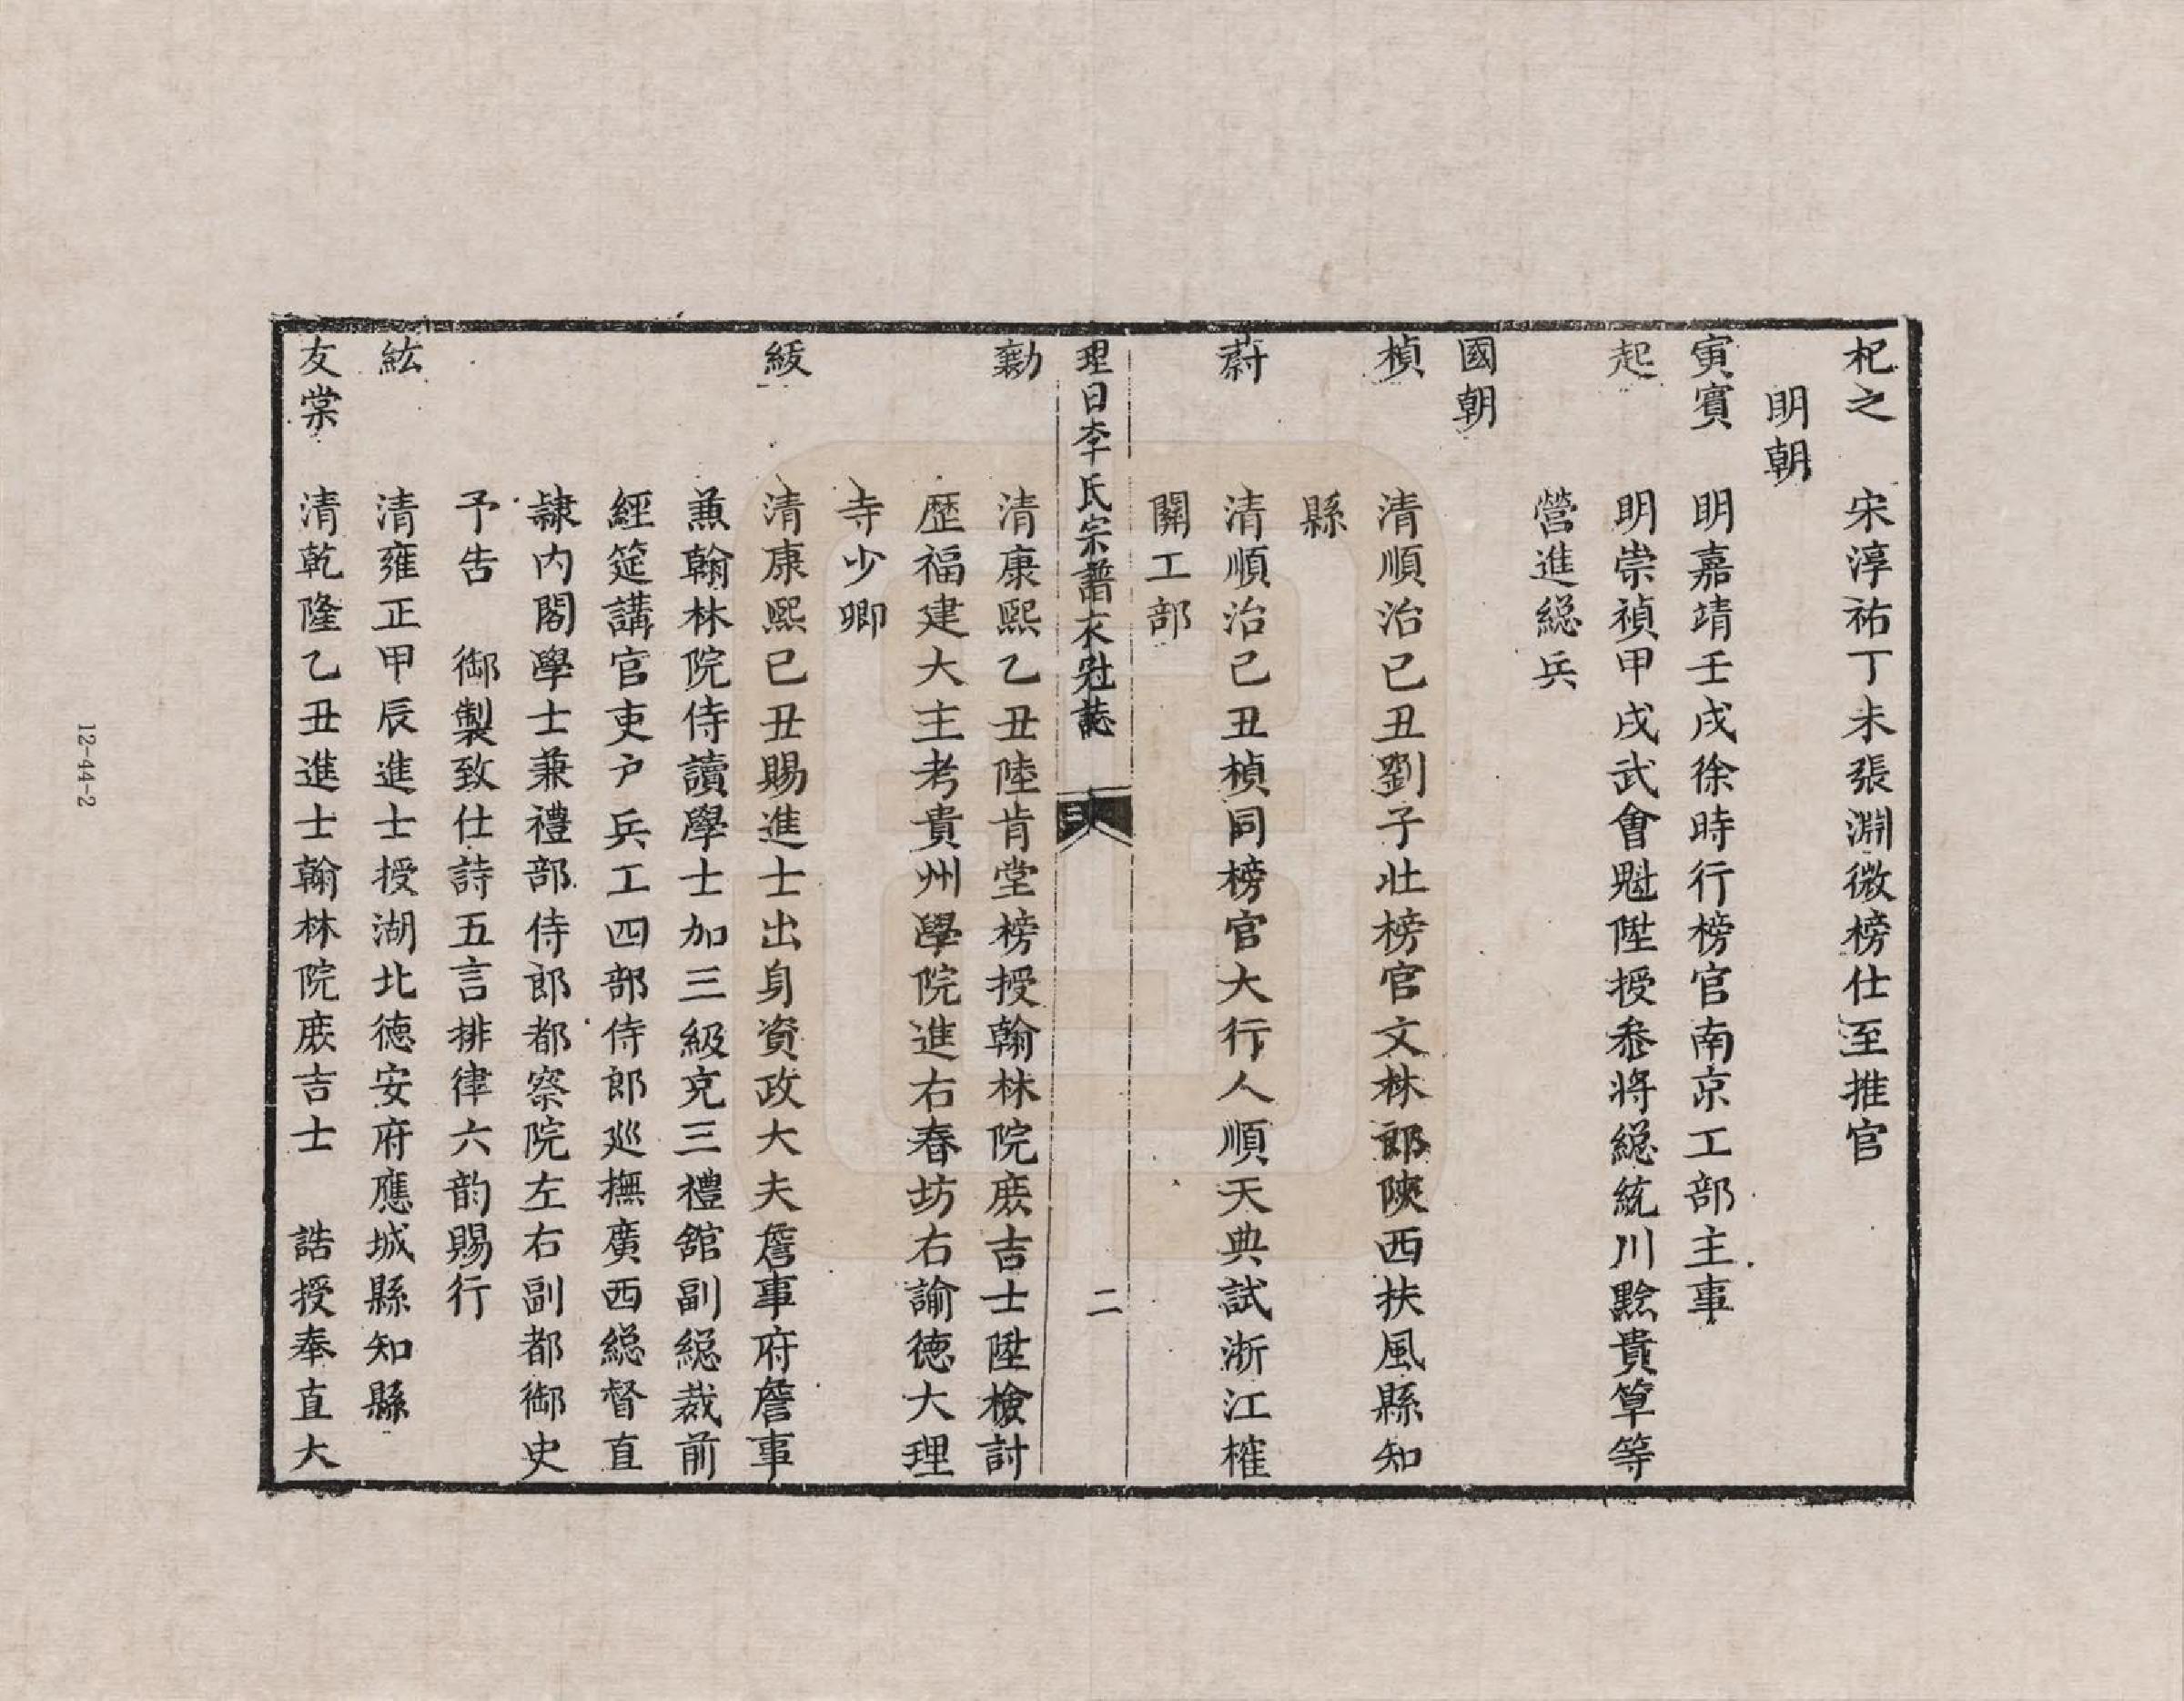 杞之　宋淳祐丁未張淵微榜仕至推官
明朝
寅賓　明嘉靖壬戌徐時行榜官南京工部主事
起　明崇禎甲戌武會魁陞授叅将総統川黔貴草等
營進総兵
國朝
楨　清順治已丑劉子壯榜官文林郎陝西扶風縣知
縣
蔚　清順治已丑楨同榜官大行人順天典試浙江榷
關工部
理日李氏宗譜衣冠誌
二
勷　清康熙乙丑陸肯堂榜授翰林院庶吉士陞檢討
歷福建大主考貴州學院進右春坊右諭德大理
寺少卿
紱　清康熙已丑賜進士出身資政大夫詹事府詹事
兼翰林院侍讀學士加三級充三禮舘副総裁前
經筵講官吏户兵工四部侍郎巡撫廣西総督直
隸内閣學士兼禮部侍郎都察院左右副都御史
予告　御製致仕詩五言排律六韵賜行
紘　清雍正甲辰進士授湖北德安府應城縣知縣
友棠　清乾隆乙丑進士翰林院庶吉士　誥授奉直大
12-44-2